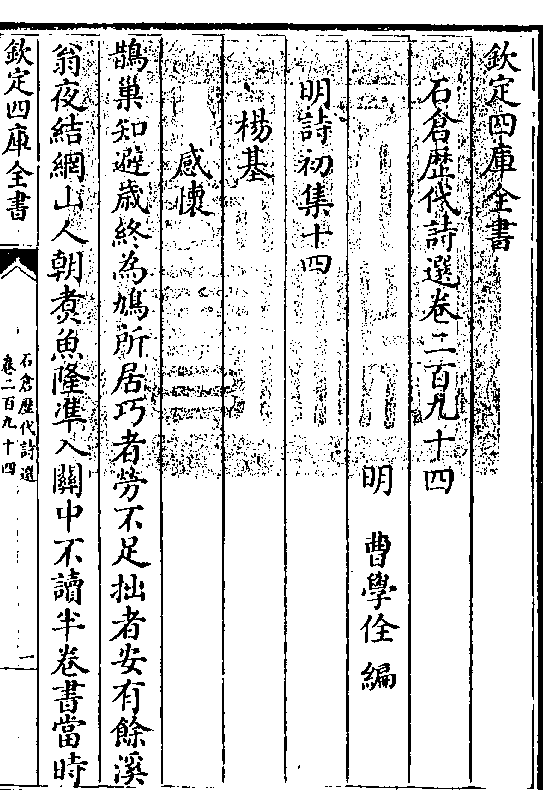 欽定四庫全書
石倉歴代詩選卷二百九十四
明 曹學佺 編
明詩初集十四
楊基
感懷
鵲巢知避歳終為鳩所居巧者勞不足拙者安有餘溪
翁夜結網山人朝煑魚隆凖入關中不讀半卷書當時
欽定四庫全書
石倉歴代詩選
卷二百九十四
一